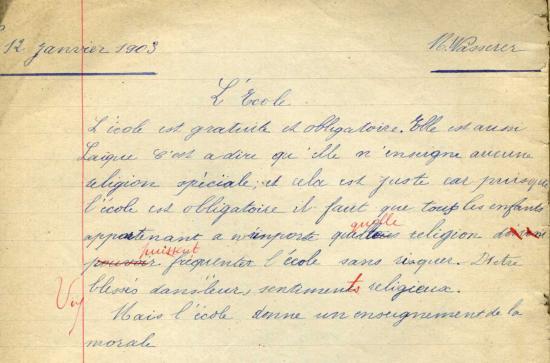 12 Janvier 1903
L'École
L'école est gratuite et obligatoire. Elle est aussi
Laïque C'est a dire qu'ille n'ensegne aucune
religion spéciale; et cela est juste car puisque
l'école est obligatoire il faut que tous les enfants
appartenant a n'importe quelle religion
puissent
pouvoir fréquenter l'école sans risquer. D'etre
blessés dans leur, sentiments religieux.
Vu
Mais l'école donne un enseignement de la
morale